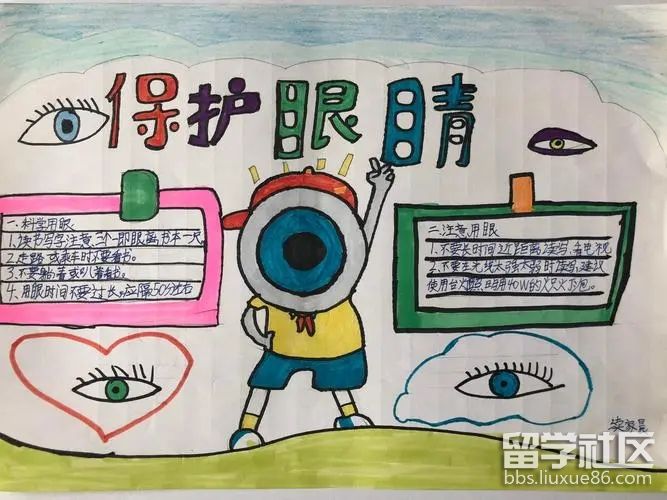 保护眼睛
一.科学用眼
1.读书写字注意三个一即眼离书本一尺
2.走路或乘车时不要看书。
3.不要躺着或趴着看书。
4.用眼时间不要过长,应隔50分钟左右
二.注意用眼
1.不要长时间近距离读写,看电视
2.不要在光线太强太弱时读写,建议
使用台灯照明用40W的
留学社区
bbs.liuxue86.com